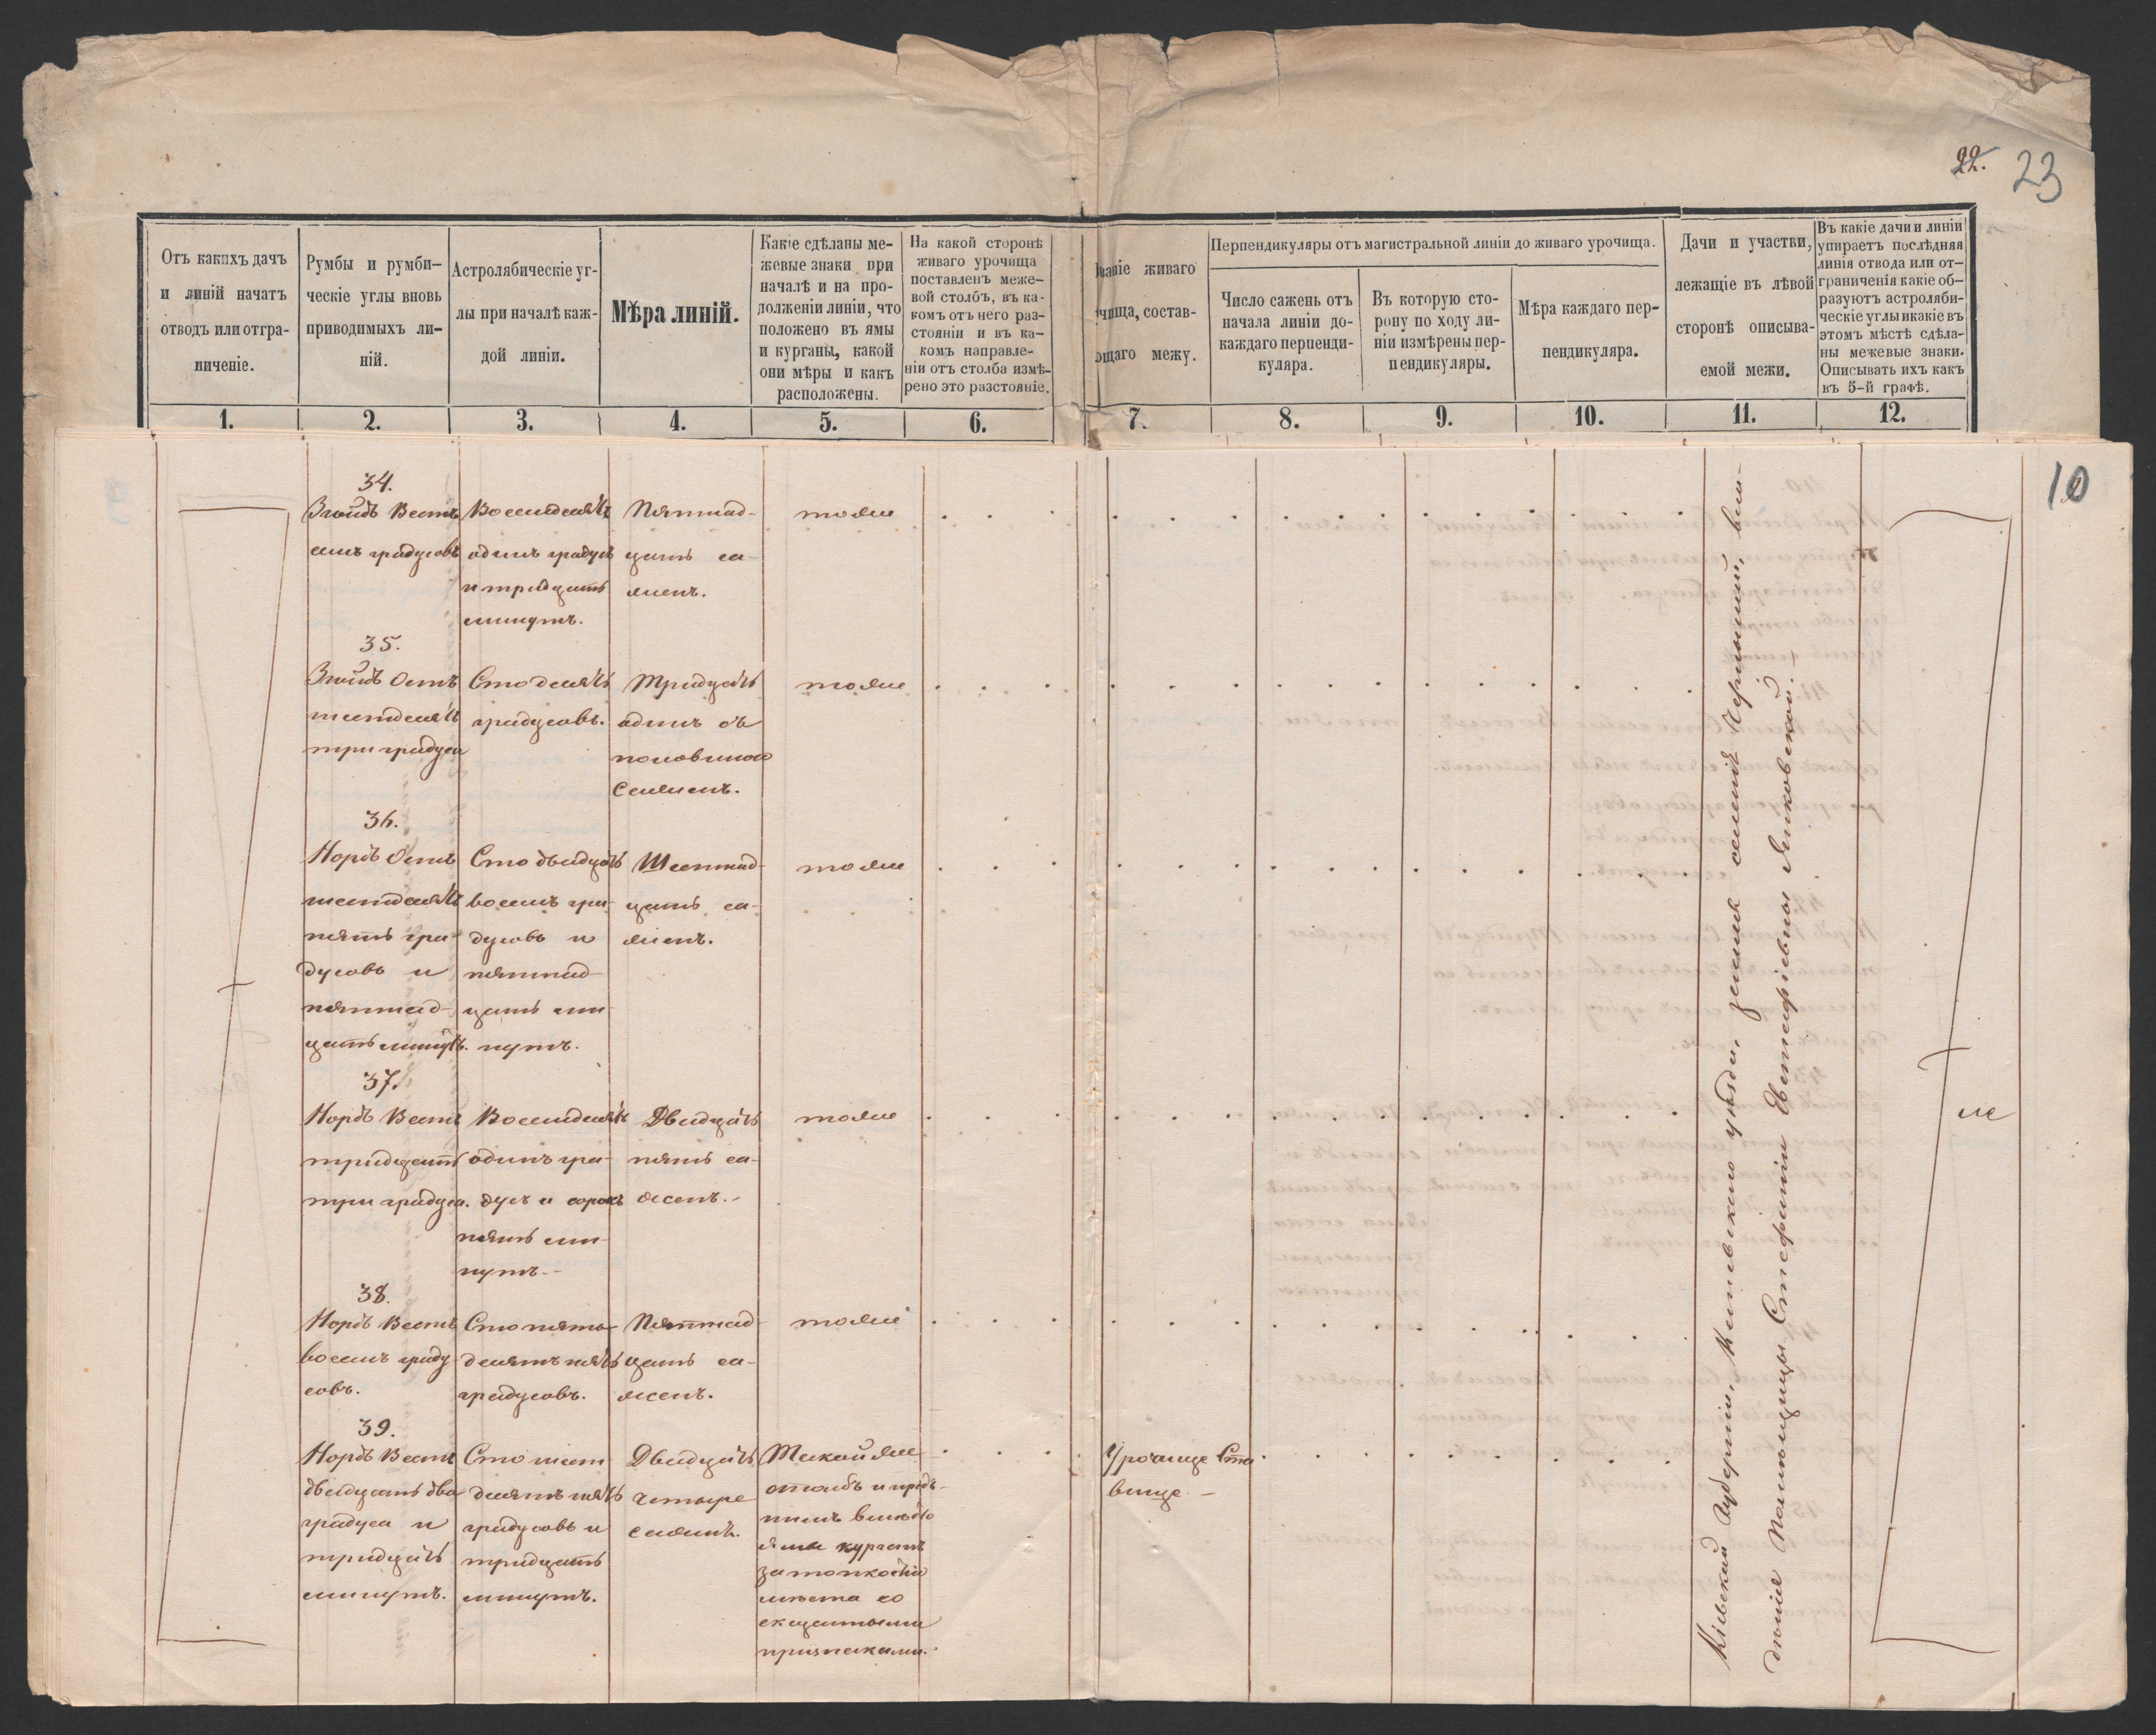 22. 23
Отъ какихъ дачъ
и линій начатъ
отводъ или отгра-
ниченіе.
Румбы и румби-
ческіе углы вновь
приводимыхъ ли-
ній.
Астролябическіе уг-
лы при началѣ каж-
дой линіи.
Мѣра линій.
Какіе сдѣланы ме-
жевые знаки при
началѣ и на про-
долженіи линіи, что
положено въ ямы
и курганы, какой
они мѣры и какъ
расположены.
На какой сторонѣ
живаго урочища
поставленъ меже-
вой столбъ, въ ка-
комъ отъ него раз-
стояніи и въ ка-
комъ направле-
ніи отъ столба измѣ-
рено это разстояніе.
ваніе живаго
чища, состав-
ющаго межу.
Перпендикуляры отъ магистральной линіи до живаго урочища.
Число сажень отъ
начала линіи до-
каждаго перпенди-
куляра.
Въ которую сто-
рону по ходу ли-
ніи измѣрены пер-
пендикуляры.
Мѣра каждаго пер-
пендикуляра.
Дачи и участки,
лежащіе въ лѣвой
сторонѣ описыва-
емой межи.
Въ какіе дачи и линіи
упираетъ послѣдняя
линія отвода или от-
граниченія какіе об-
разуютъ астроляби-
ческіе углы и какіе въ
этомъ мѣстѣ сдѣла-
ны межевые знаки.
Описывать ихъ какъ
въ 5-й графѣ.
1. 2. 3. 4. 5. 6. 7. 8. 9. 10. 11. 12.
10
34.
Зюйдъ Вестъ
семь градусовъ
Восемдесятъ
одинъ градусъ
и тридцать
минутъ.
Пятнад-
цать са-
женъ.
тоже
35.
Зюйдъ Остъ
шестдесятъ
три градуса
Сто десять
градусовъ.
Тридцать
одинъ съ
половиною
Саженъ.
тоже
36.
Нордъ Остъ
шестдесятъ
пять гра-
дусовъ и
пятнад-
цать минутъ.
Сто двадцать
восемь гра-
дусовъ и
пятнад-
цать ми-
нутъ.
Шестнад-
цать са-
женъ.
тоже
37.
Нордъ Вестъ
тридцать
три градуса.
Восемдесятъ
одинъ гра-
дусъ и сорокъ
пять ми-
нутъ.
Двадцать
пять са-
женъ.
тоже
38.
Нордъ Вестъ
восемь граду-
совъ.
Сто пять-
десятъ пять
градусовъ.
Пятнад-
цать са-
женъ.
тоже
39.
Нордъ Вестъ
двадцать два
градуса и
тридцать
минутъ.
Сто шест-
десятъ пять
градусовъ и
тридцать
минутъ.
Двадцать
четыре
сажени.
Такой же
столбъ и предъ
нимъ вмѣсто
ямы курганъ
за топкостію
мѣста со
сказанными
признаками.
Урочище Ста
вище
Кіевской Губерніи, Уѣзда, земля селенія вла-
дѣнія Помѣщицы Стефаніи Евстафіевны Янковской.